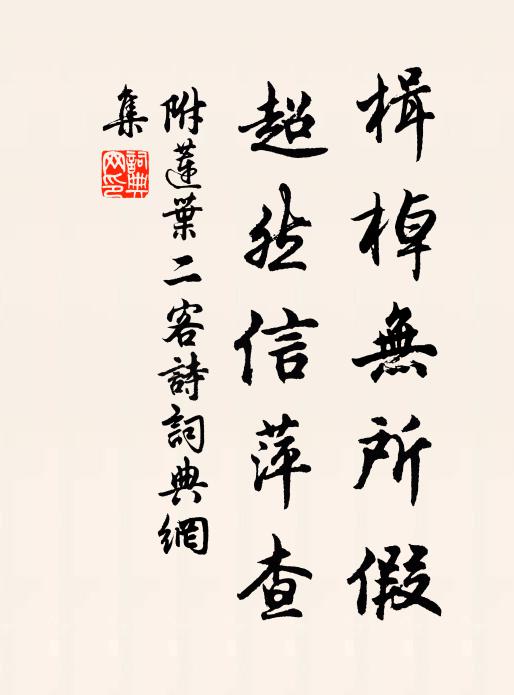 楫棹無所假
超然信萍查
附蓮葉二客詩詞典網
集
詞典
网印